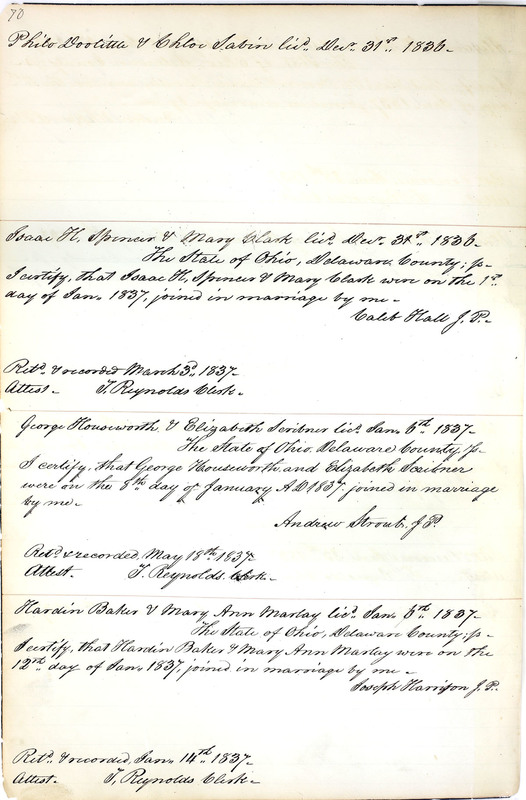 70
Philo Doolittle & Chloe Sabin licd. Decr. 31st. 1836–
Isaac H. Spencer & Mary Clark licd. Decr. 31st. 1836–
The State of Ohio, Delaware County; ss–
I certify, that Isaac H. Spencer & Mary Clark were on the 1st.
day of Jan. 1837, joined in marriage by me–
Caleb Hall J. P.–
Retd. & recorded March 3d. 1837–
Attest– T. Reynolds Clerk–
George Houseworth & Elizabeth Scribner licd. Jan. 6th. 1837–
The State of Ohio Delaware County, ss–
I certify, that George Houseworth and Elizabeth Scribner
were on the 8th day of January AD 1837. joined in marriage
by me–
Andrew Stroub, J P.
Retd. & recorded, May 18th. 1837–
Attest. T. Reynolds. Clerk–
Hardin Baker & Mary Ann Marlay licd. Jan. 6th. 1837–
The State of Ohio, Delaware County; ss–
I certify, that Hardin Baker & Mary Ann Marlay were on the
12th. day of Jan. 1837, joined in marriage by me–
Joseph Harrison J. P.
Retd. & recorded, Jan. 14th. 1837–
Attest– T. Reynolds Clerk–